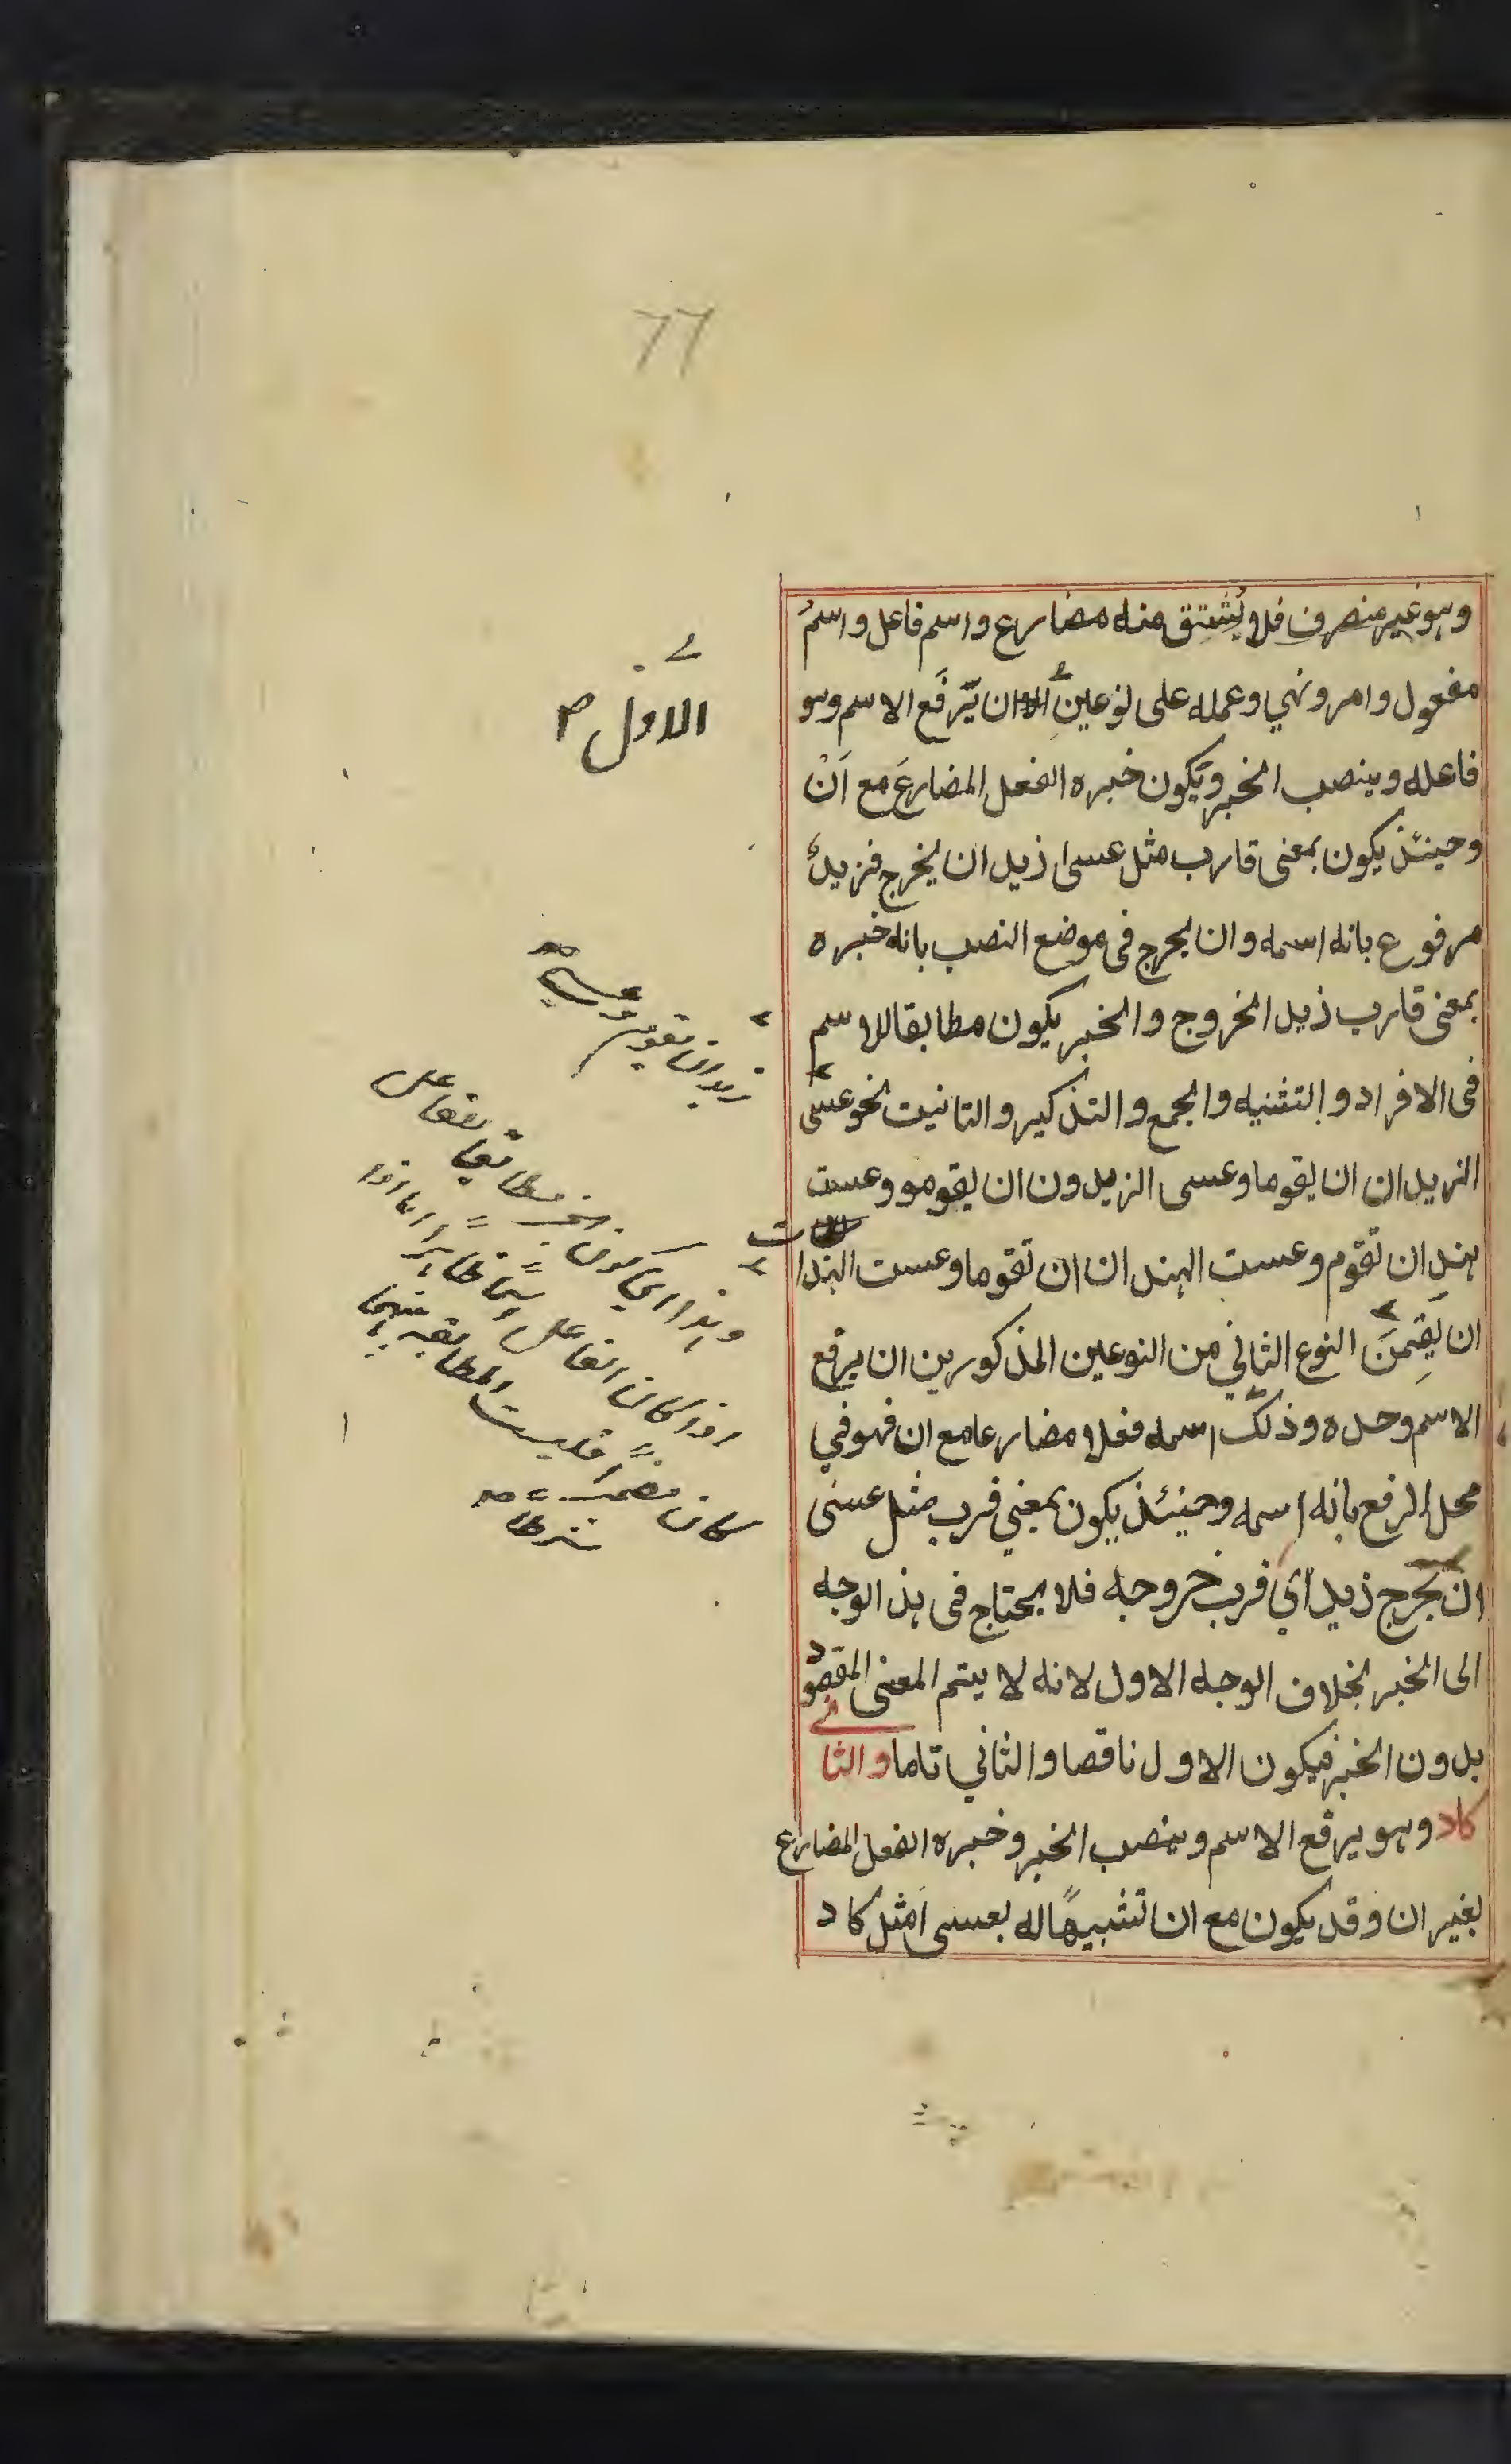 ٦٦
وهو غير منصرف فلا يُشتق منه مضارع واسم فاعل واسمُ
مفعول وامر ونهي وعمله على نوعين ان يَرفَع الاسم وهو
فاعله وينصب الخبر ويكون خبره الفعل المضارعَ مع اَنْ
وحينئذ يكون بمعنى قارب مثل عسى زيد ان يخرج فزيدٌ
مرفوع بانه اسمه وان يخرج فى موضع النصب بانه خبره
بمعنى قارب زيد الخروج والخبر يكون مطابقا للاسم
فى الافراد والتثنيه والجمع والتذكير والتانيت نحو عسى
الزيدان ان يقوما وعسى الزيدون ان يقومو وعست
هند ان تقوم وعست الهندان ان تقوما وعست الهندا
ت
ان يَقِمنَ النوع الثاني من النوعين المذكورين ان يرفع
الاسم وحده وذلك اسمه فعلا مضارعا مع ان فهو في
محل الرفع بانه اسمه وحينئذ يكون بمعني قرب مثل عسى
ان يخرج زيد اَي قرب خروجه فلا يحتاج فى هذ الوجه
الى الخبر بخلاف الوجه الاول لانه لا يتم المعنى المقصود
بدون الخبر فيكون الاول ناقصا والثاني تاما والثانى
كاد وهو يرفع الاسم وينصب الخبر وخبره الفعل المضارع
بغير ان وقد يكون مع ان تشبيهاً له بعسى مثل كاد
الاول
زيد ان يقوم وعسى
وهذا اي كون الخبر مطابقا للفاعل
اذا كان الفاعل اسمًا ظاهرًا اما اذا
كان مضمرًا فليست المطابقه بينهما
شرطا